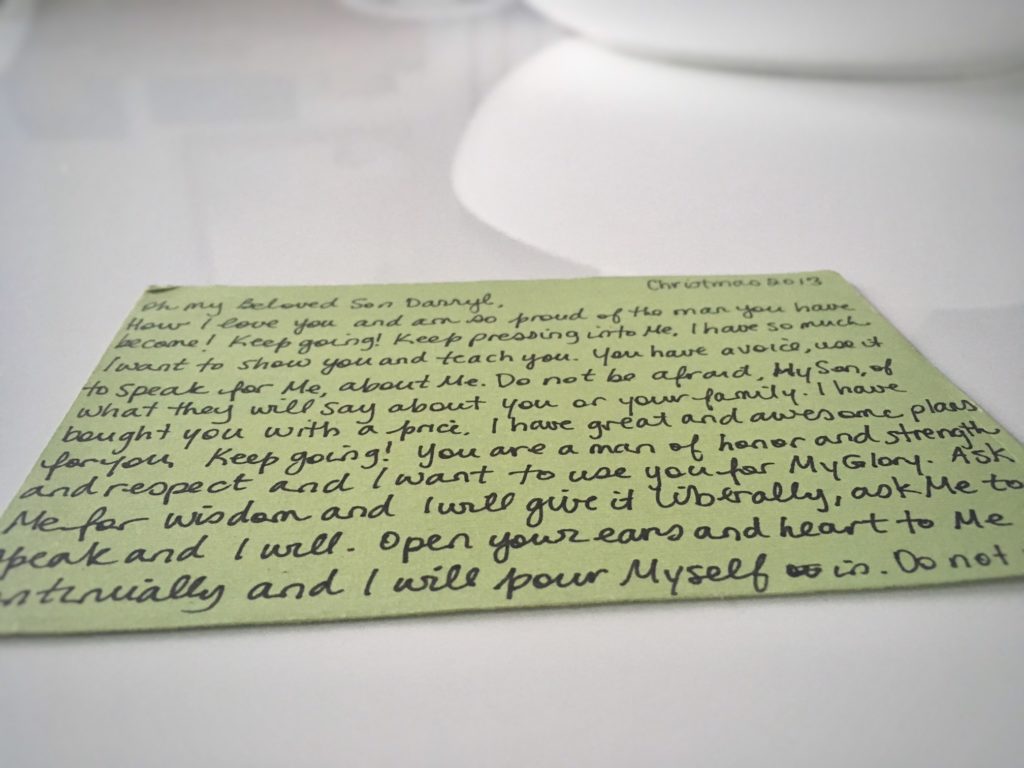 Christmas 2013
Oh my Beloved Son Darryl,
How I love you and am so proud of the man you have
become! Keep going! Keep pressing into Me. I have so much
I want to show you and teach you. You have a voice, use it
to speak for Me, about Me. Do not be afraid, My Son, of
what they will say about you or your family. I have
bought you with a price. I have great and awesome plans
for you. Keep going! You are a man of honor and strength
and respect and I want to use you for My Glory. Ask
Me for wisdom and I will give it liberally, ask Me to
speak and I will. Open your ears and heart to Me
ntinually and I will pour Myself in. Do not